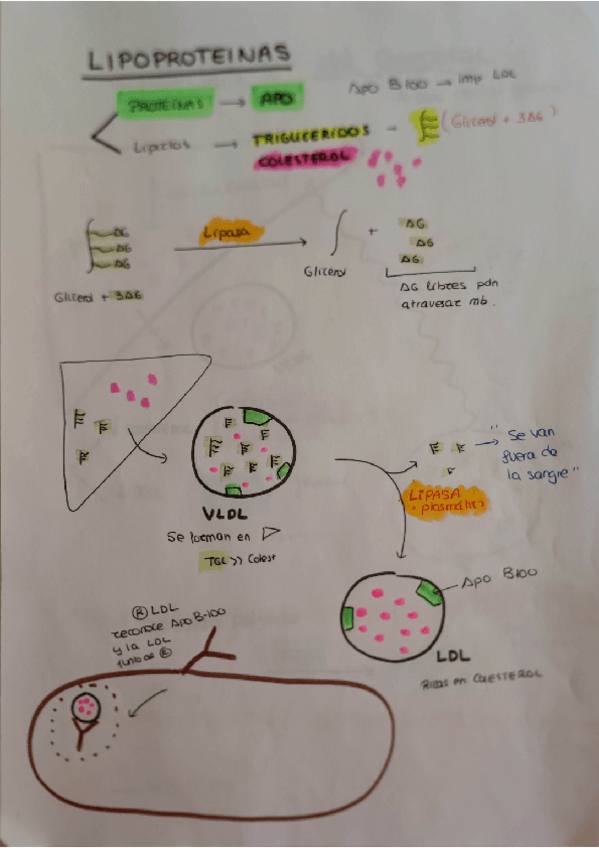 LIPOPROTEINAS
PROTEINAS → APO
Apo B100 → imp LDL
Lipidos → TRIGLICERIDOS → (Glicerol + 3AG)
COLESTEROL
AG
AG
AG
Lipasa
Glicerol
+
AG
AG
AG
Glicerol + 3AG
AG libres pdn
atravesar mb.
VLDL
Se forman en
TGL >> Colest
"Se van
fuera de
la sangre"
LIPASA
plasmática
Apo B100
LDL
Ricas en COLESTEROL
Ⓡ LDL
reconoce Apo B-100
y la LDL